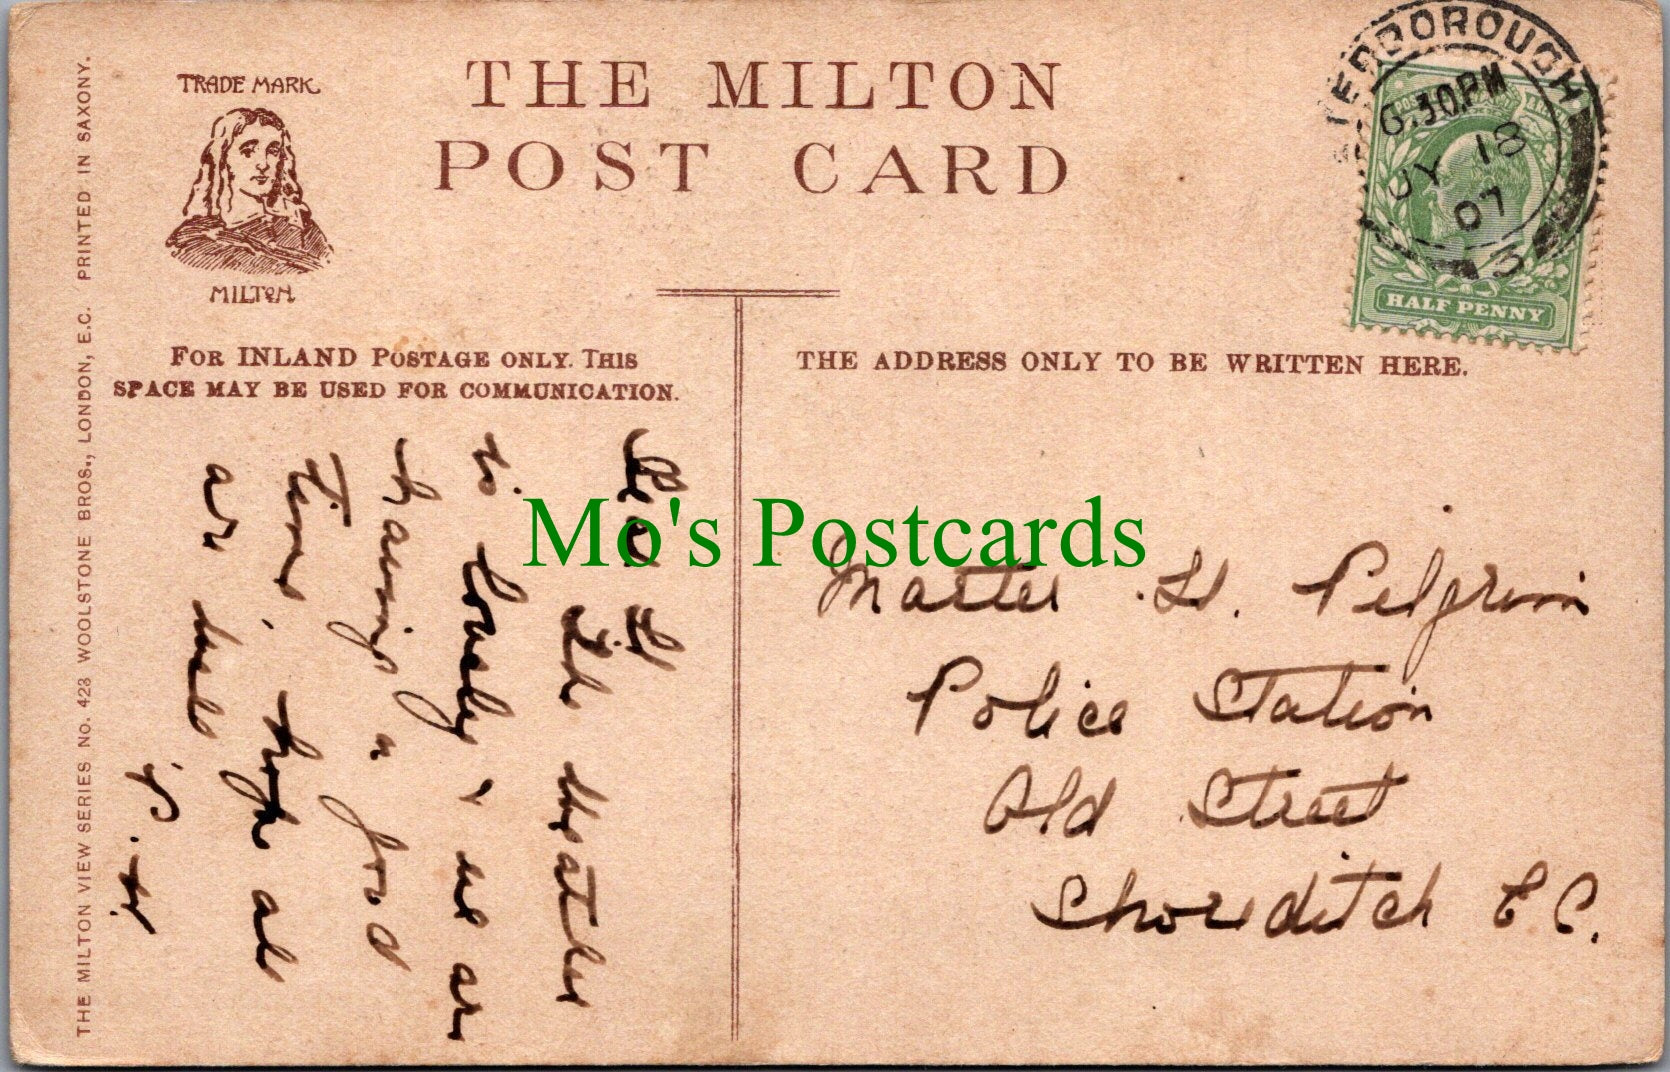 TRADE MARK
MILTON
THE MILTON
POST CARD
TERBOROUGH
6.30PM
JY 18
07
3
HALF PENNY
FOR INLAND POSTAGE ONLY. THIS
SPACE MAY BE USED FOR COMMUNICATION.
THE ADDRESS ONLY TO BE WRITTEN HERE.
THE MILTON VIEW SERIES No. 423 WOOLSTONE BROS., LONDON, E.C. PRINTED IN SAXONY.
Dear H
The weather
is lovely & we are
having a good
time, hope all
are well
P. H.
Master H. Pelgrim
Police Station
Old Street
Shoreditch E C.
Mo's Postcards